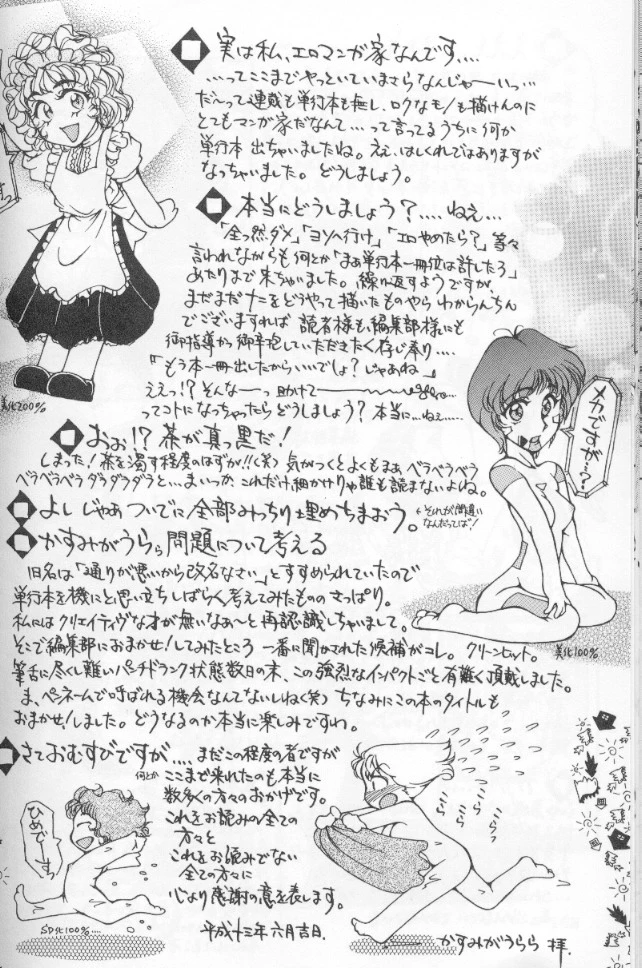 実は私、エロマンガ家なんです、...
...ってここまでやっといていまさらなんじゃーいっ...
だ〜って連載も単行本も無し、ロクなモノも描けんのに
とてもマンガ家だなんて...って言ってるうちに何か
単行本 出ちゃいましたね。ええ、はしくれではありますが
なっちゃいました。どうしましょう。
本当にどうしましょう?....ねえ...
「全っ然ダメ」「ヨソへ行け」「エロやめたら?」等々
言われながらも何とか「まあ単行本一冊位は許したろ」
あたりまで来ちゃいました。繰り返すようですが、
まだまだナニをどうやって描いたものやらわからんちん
でございますれば 読者様も編集部様にも
御指導かつ御辛抱していただきたく存じ奉り....
「もう本一冊出したからいいでしょ?じゃあね」
ええっ!?そんな〜っ 助けて〜
ってコトになっちゃったらどうしましょう?本当に...ねえ......
美化200%
メカですが...?
おぉ!?茶が真っ黒だ!
しまった!茶を濁す程度のはずが!!(笑) 気がつくとよくもまあ、ベラベラベラ
ベラベラベラダラダラダラと...まいっか、これだけ細かけりゃ誰も読まないよね。
よし じゃあついでに全部みっちり埋めちまおう。
←それが間違い
なんだってば!
かすみがうらら問題について考える
旧名は「通りが悪いから改名なさい」とすすめられていたので
単行本を機にと思い立ちしばらく考えてみたもののさっぱり。
私にはクリエイティヴな才が無いなあ〜と再認識しちゃいまして。
そこで編集部におまかせ!してみたところ 一番に聞かされた候補がコレ。クリーンヒット。
美化100%
筆舌に尽くし難いパンチドランク状態数日の末、この強烈なインパクトごと有難く頂戴しました。
ま、ペンネームで呼ばれる機会なんてないしね(笑) ちなみにこの本のタイトルも
おまかせ!しました。どうなるのか本当に楽しみですわ。
さておむすびですが....まだこの程度の者ですが
何とか ここまで来れたのも本当に
数多くの方々のおかげです。
これをお読みの全ての
方々と
これをお読みでない
全ての方々に
心より感謝の意を表します。
平成十三年六月吉日.
かすみがうらら 拝.
ひめです。
SD化100%....
うらら
うらら